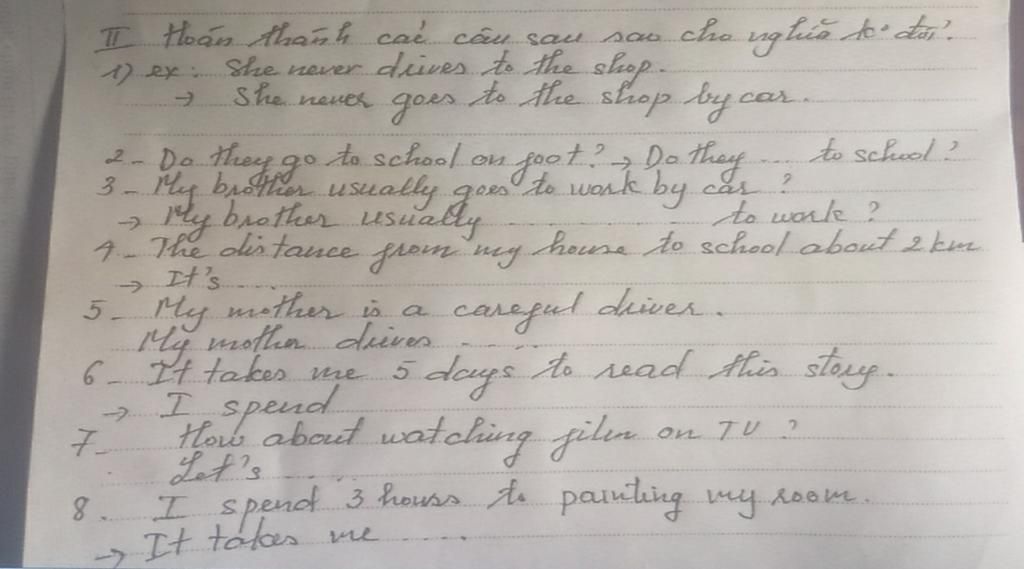 II Hoán thánh các câu sau sao cho nghĩa ko đổi?
1) ex: She never drives to the shop.
→ She never goes to the shop by car.
2- Do they go to school on foot? → Do they .... to school?
3- My brother usually goes to work by car ?
→ My brother usually .............. to work ?
4- The distance from my house to school about 2 km
→ It's ....
5- My mother is a careful driver.
My mother drives .....
6- It takes me 5 days to read this story.
→ I spend
7- How about watching film on TV ?
Let's ....
8. I spend 3 hours to painting my room.
→ It takes me .....